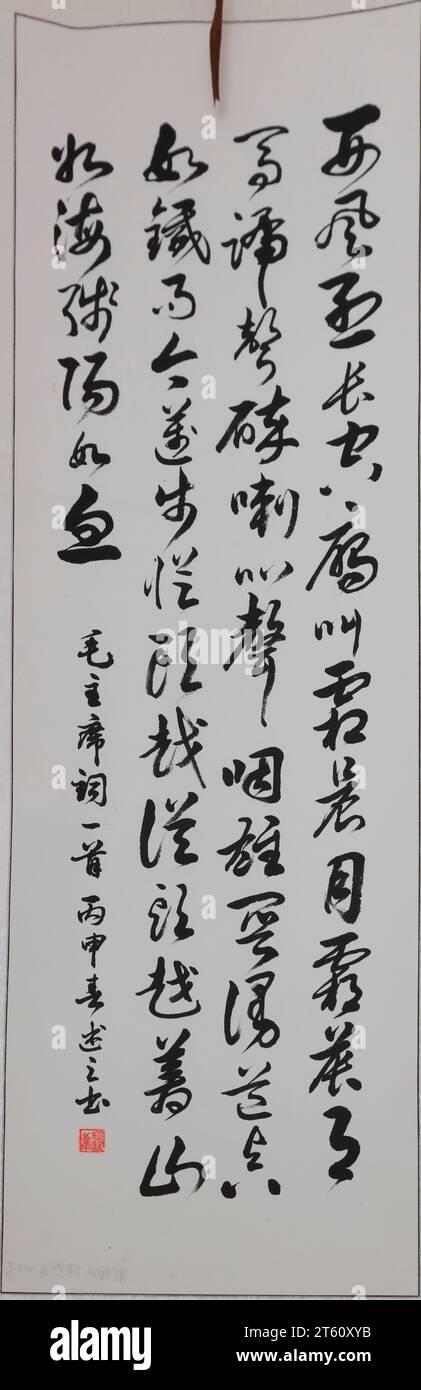 西風烈长空雁叫霜晨月霜晨月
馬蹄聲碎喇叭聲咽雄関漫道真
如鐵而今邁步從頭越從頭越蒼山
如海殘陽如血
毛主席詞一首 丙申春述之书
alamy
Image ID: 2T60XYB
www.alamy.com